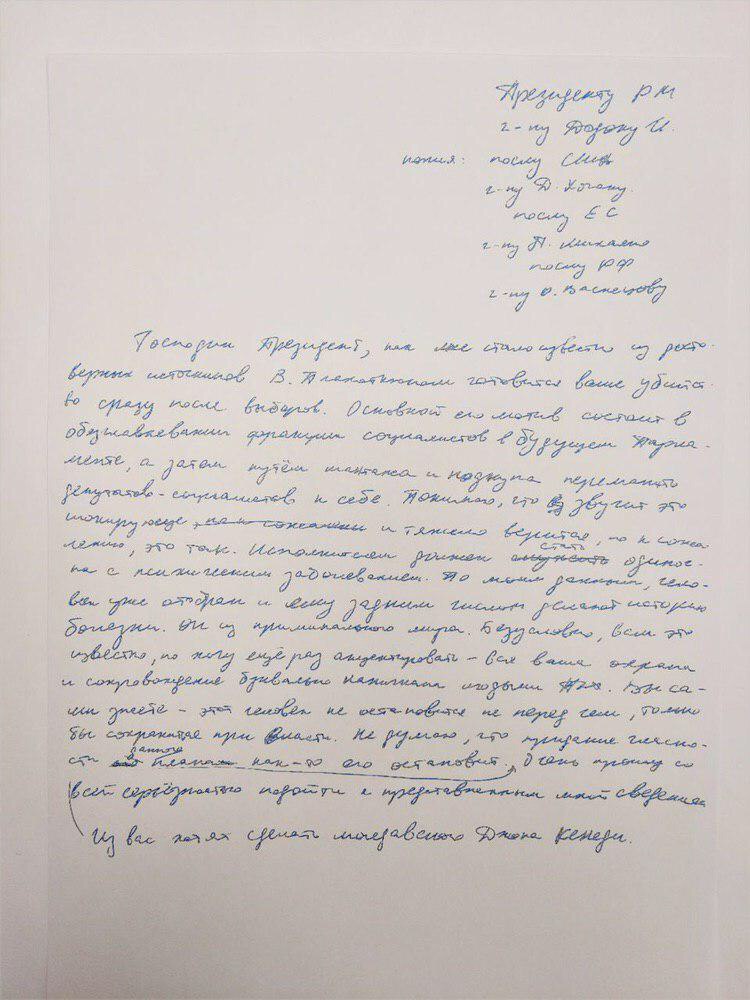 Президенту РМ
г-ну Додону И.
копия: послу США
г-ну Д. Хогану.
послу ЕС
г-ну П. Михалко
послу РФ
г-ну О. Васнецову
Господин Президент, как мне стало известно из досто-
верных источников В. Плахотнюком готовится ваше убийст-
во сразу после выборов. Основной его мотив состоит в
обезглавливании фракции социалистов в будущем Парла-
менте, а затем путём шантажа и подкупа переманить
депутатов-социалистов к себе. Понимаю, что звучит это
шокирующе, и тяжело верится, но к сожа
лению, это так. Исполнителем должен стать одиноч-
ка с психическим заболеванием. По моим данным, чело-
век уже отобран и ему задним числом делают историю
болезни. Он из криминального мира. Безусловно, вам это
известно, но хочу ещё раз акцентировать – вся ваша охрана
и сопровождение буквально напичкана людьми Вы са-
ми знаете – этот человек не остановится не перед чем, только
бы сохраниться при власти. Не думаю, что придание гласно-
сти данного как-то его остановит. Очень прошу со
всей серьёзностью подойти к представленным мной сведениям
Из вас хотят сделать молдавского Джона Кенеди.